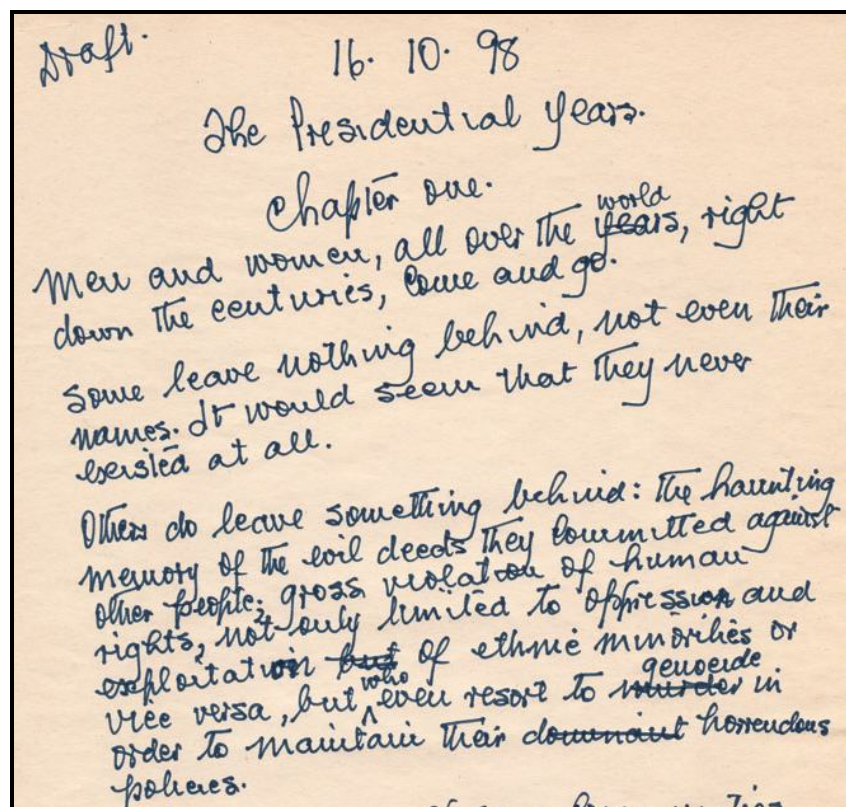 Draft.
16. 10. 98
The Presidential Years.
Chapter one.
world
Men and women, all over the years, right
down the centuries, come and go.
Some leave nothing behind, not even their
names. It would seem that they never
existed at all.
Others do leave something behind: the haunting
memory of the evil deeds they committed against
other people; gross violation of human
rights, not only limited to oppression and
exploitation but of ethnic minorities or
vice versa, but who even resort to genocide murder in
order to maintain their dominant horrendous
policies.